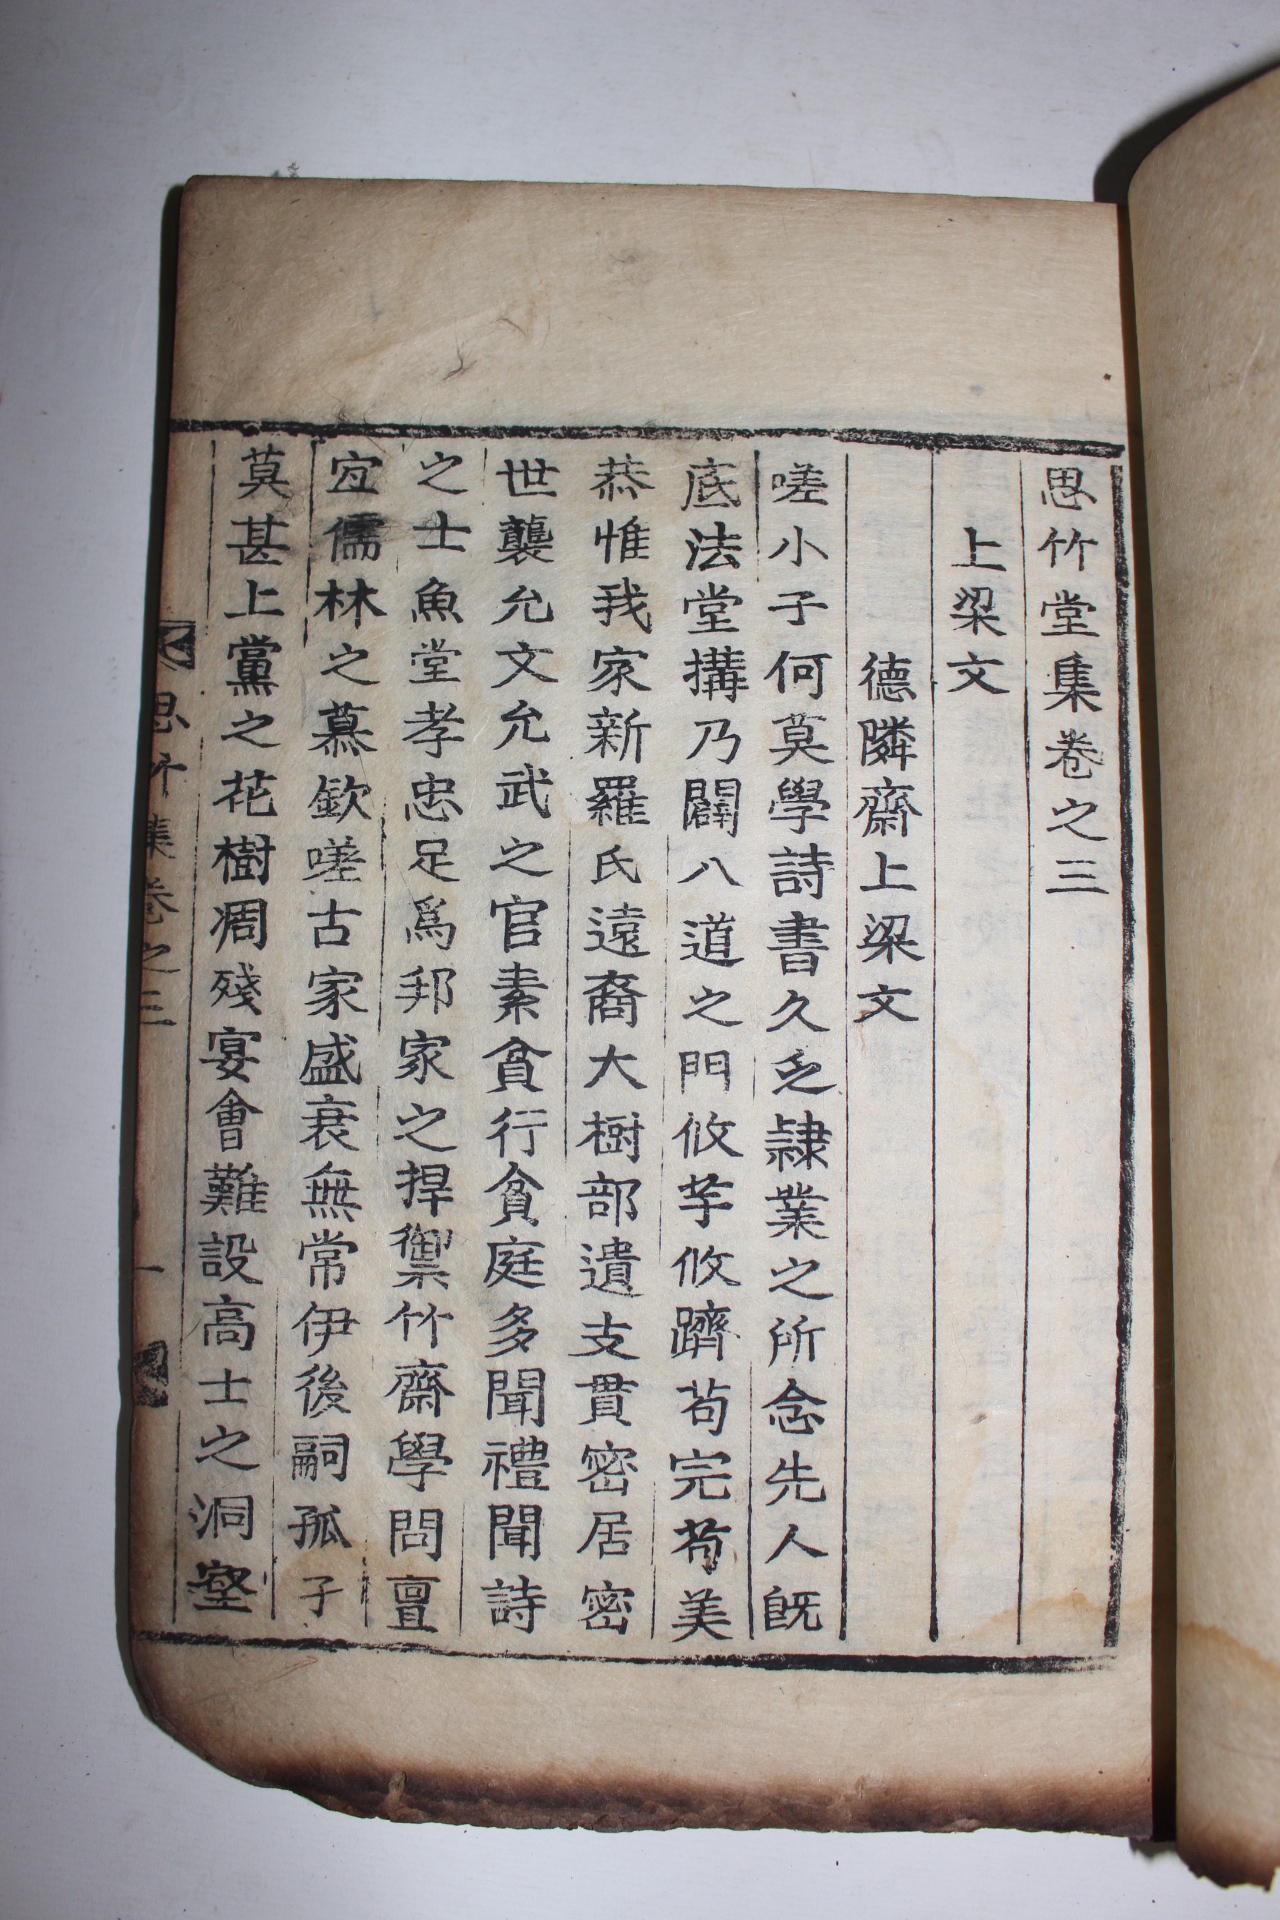 思竹堂集卷之三
上梁文
德隣齋上梁文
嗟小子何莫學詩書久乏隷業之所念先人旣
底法堂搆乃闢八道之門攸芋攸躋苟完苟美
恭惟我家新羅氏遠裔大樹部遺支貫密居密
世襲允文允武之官素貪行貪庭多聞禮聞詩
之士魚堂孝忠足爲邦家之捍禦竹齋學問亶
宜儒林之慕欽嗟古家盛衰無常伊後嗣孤子
莫甚上黨之花樹凋殘宴會難設高士之洞壑
思竹集卷之三 一